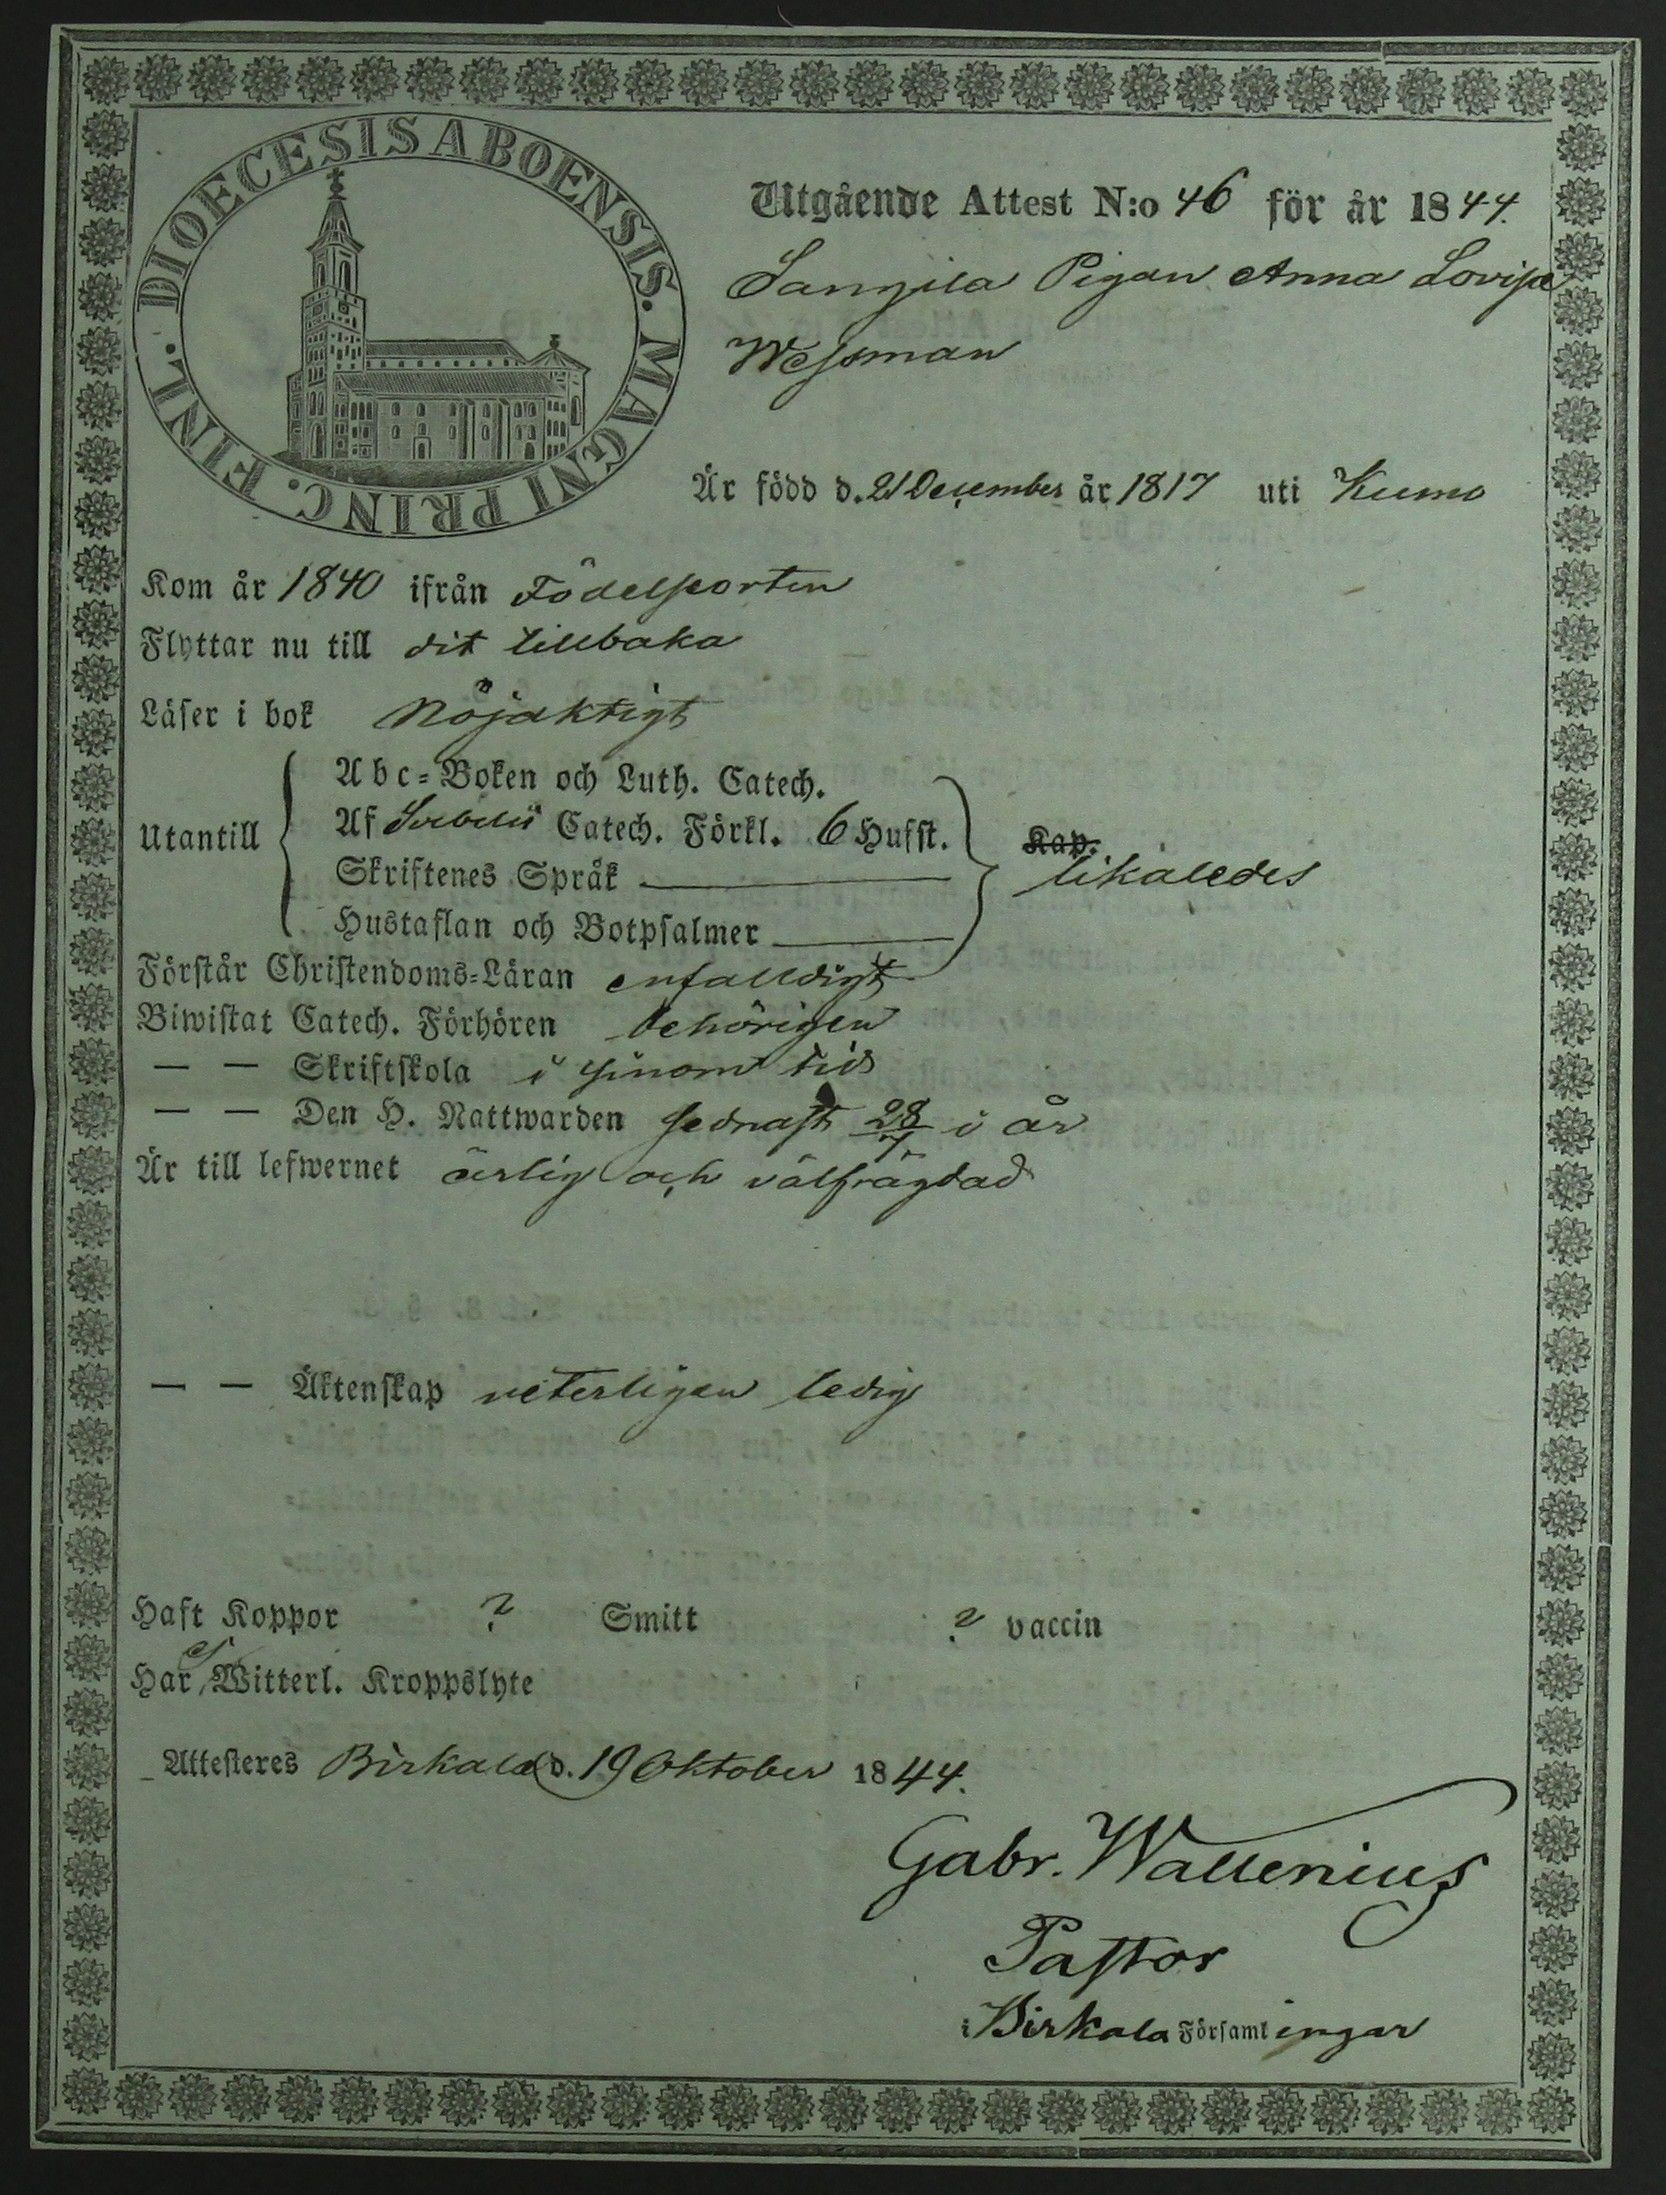 DIOECESIS ABOENSIS. MAGNI PRINC. FINL.
Utgående Attest N:o 46 för år 1844.
Pigan Anna Lovisa
Wessman
Är född d. 21 December år 1817 uti Kumo
Kom år 1840 ifrån Födelseorten
Flyttar nu till dit tillbaka
Läser i bok Nöjaktigt
Utantill
Abc-Boken och Luth. Catech.
Af Svebelii Catech. Förkl. 6 Hufst. Kap.
Skriftenes Språk likaledes
Hustaflan och Botpsalmer
Förstår Christendoms-Läran enfalldigt
Biwistat Catech. Förhören behörigen
— — Skriftskola i sinom tid
— — Den H. Nattwarden sednast 28/7 i år
Är till lefwernet ärlig och välfrägdad
— — Äktenskap veterligen ledig
Haft Koppor ? Smitt ? vaccin
Har Ej Witterl. Kroppslyte
Attesteres Birkala d. 19 Oktober 1844.
Gabr. Wallenius
Pastor
i Birkala Församlingar